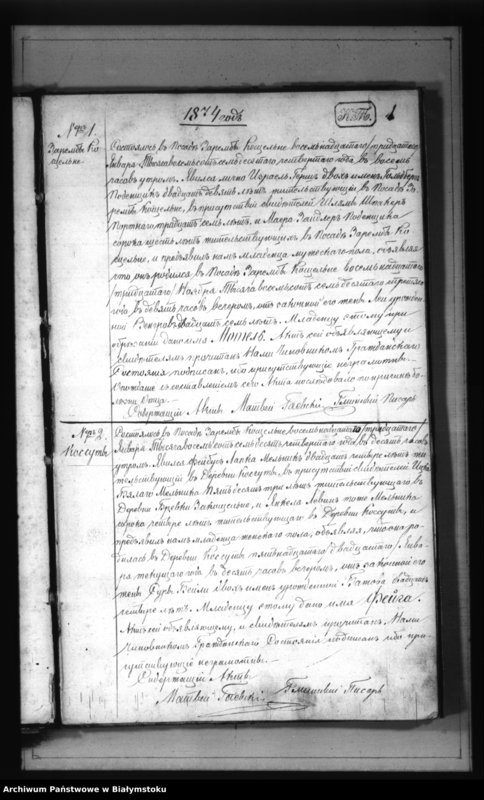 1874 годъ
1
№ 1.
Зарембы Ко
сцельне.
Состоялось въ Посадѣ Зарембы Косцельне восемьнадцатаго /тридцатаго/
Января тысяча восемьсотъ семьдесятъ четвертаго года въ восемь
часовъ утромъ. Явился лично Израель Гершъ двохъ именъ
Поденщикъ двадцати девяти лѣтъ жительствующій въ Посадѣ За
рембы Косцельне, въ присутствіи свидѣтелей
Портнаго тридцати семь лѣтъ, и Поденщика
сорока шести лѣтъ жительствующихъ въ Посадѣ Зарембы Ко
сцельне, и предъявилъ намъ младенца мужескаго пола, объявляя
что онъ родился въ Посадѣ Зарембы Косцельне восемьнадцатаго
/тридцатаго/ Ноября тысяча восемьсотъ семьдесятъ третьяго
года въ девять часовъ вечеромъ, отъ законной его жены Леи урожден
ной двадцати семь лѣтъ. Младенцу этому при
обрѣзаніи дано имя Мошекъ. Актъ сей объявляющему и
свидѣтелямъ прочитанъ Нами Чиновникомъ Гражданскаго
Состоянія подписанъ, ибо присутствующіе неграмотные.
Опозданіе въ составленіи сего Акта послѣдовало по причинѣ
отца.
Содержащій Акты. Матвей Гаевскій Гминный Писарь
№ 2
Коссутъ
Состоялось въ Посадѣ Зарембы Косцельне восемьнадцатаго /тридцатаго/
Января тысяча восемьсотъ семьдесятъ четвертаго года, въ десять часовъ
утромъ. Явился Лапка Мельникъ двадцати четыре лѣтъ жи
тельствующій въ Деревни Коссутъ, въ присутствіи свидѣтелей
Мельника пятьдесятъ три лѣтъ жительствующаго въ
Деревни и тоже Мельника
сорока четыре лѣтъ жительствующаго въ Деревни Коссутъ, и
предъявилъ намъ младенца женскаго пола, объявляя, что она ро
дилась въ Деревни Коссутъ /двадцатаго/ Янва
ря текущаго года въ десять часовъ вечеромъ, отъ законной его
жены Суры Бейли двохъ именъ урожденной двадцати
четыре лѣтъ. Младенцу этому дано имя Фейга.
Актъ сей объявляющему, и свидѣтелямъ прочитанъ, Нами
Чиновникомъ Гражданскаго Состоянія подписанъ ибо при
сутствующіе неграмотные.
Содержащій Акты
Матвей Гаевскій Гминный Писарь
Archiwum Państwowe w Białymstoku